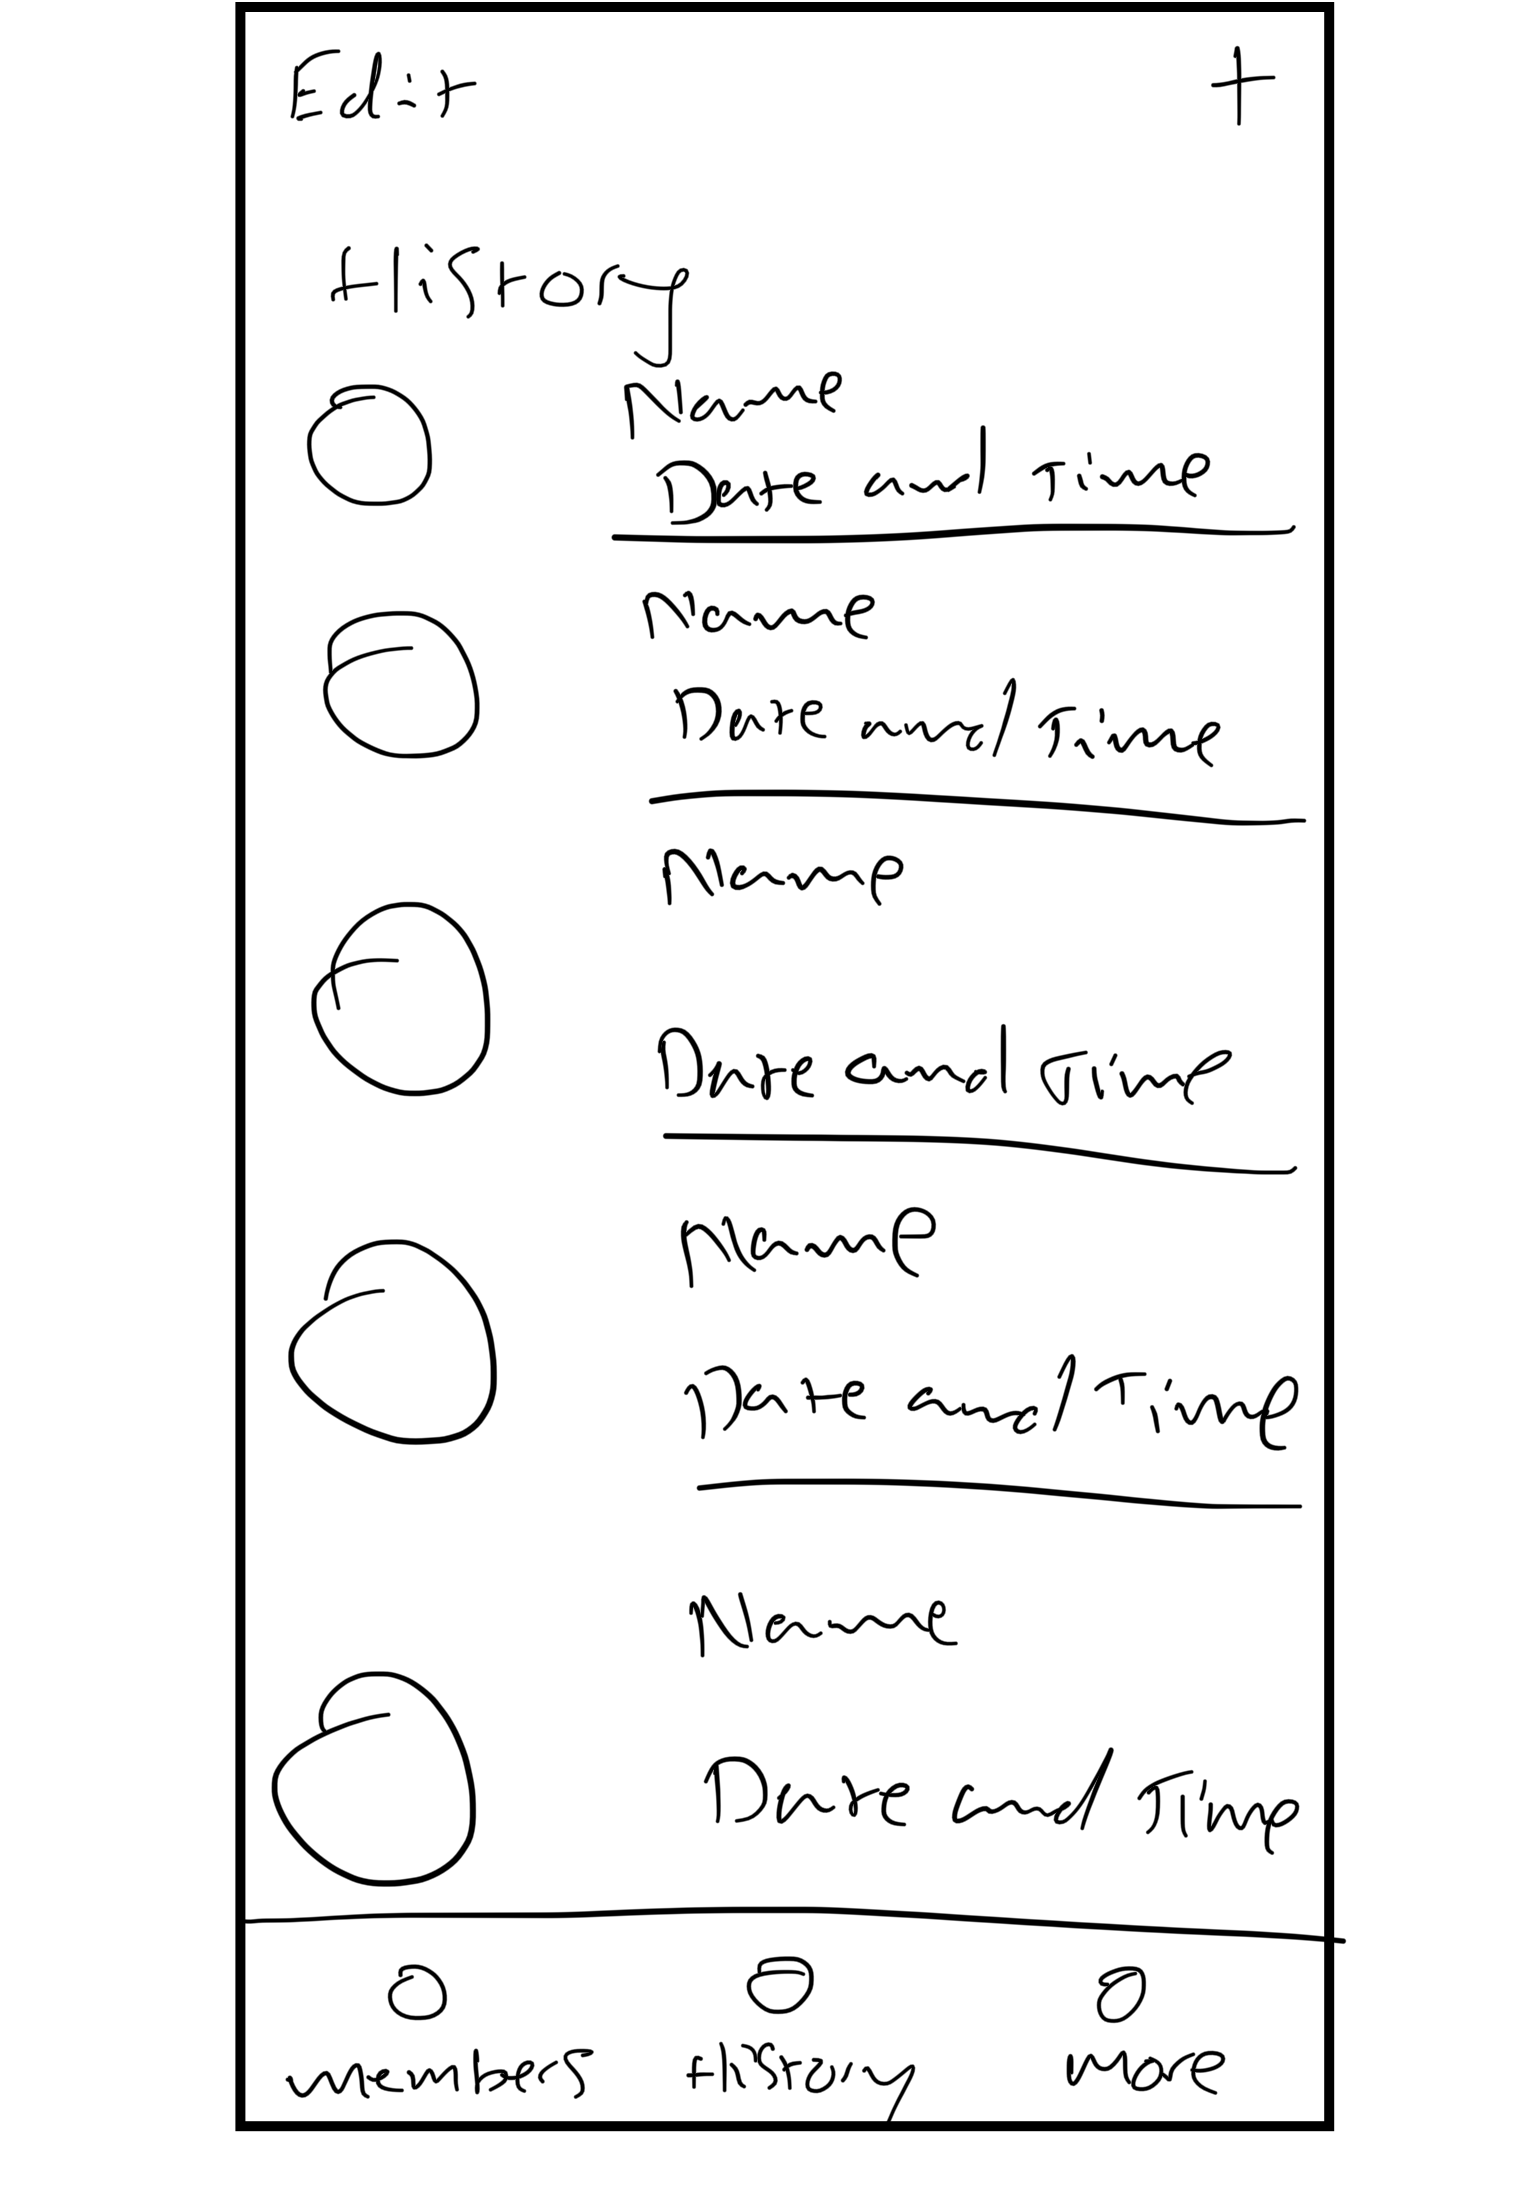 Edit +
History
Name
Date and Time
Name
Date and Time
Name
Date and Time
Name
Date and Time
Name
Date and Time
members History more